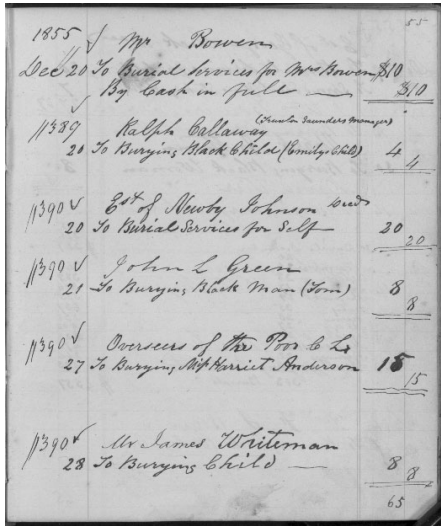 55
1855 ✓ Mr Bowen
Dec 20 To Burial Services for Mrs Bowen $10
By Cash in full — $10
✓
11389 Ralph Callaway (Saunders Manager)
20 To Burying Black Child (Emilys Child) 4
4
11390 ✓ Est of Newby Johnson
20 To Burial Services for Self 20
20
11390 ✓ John L Green
21 To Burying Black Man (Tom) 8
8
11390 ✓ Overseers of the Poor C L
27 To Burying Miss Harriet Anderson 15
15
11390 ✓ Mr James Whiteman
28 To Burying Child — 8
8
65